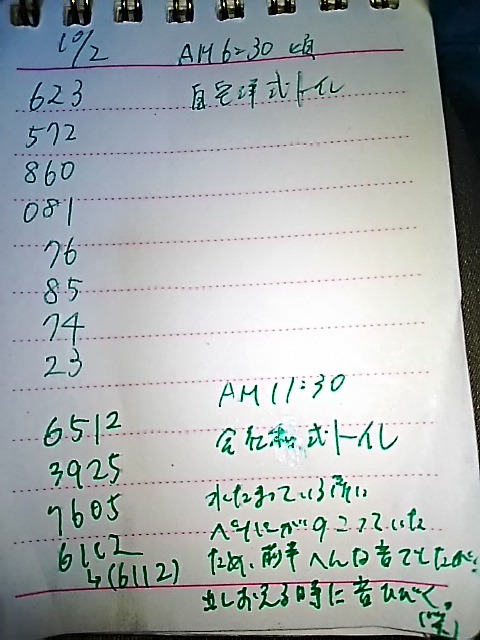 10/2 AM6:30頃
623 自宅洋式トイレ
572
860
081
76
85
74
23
AM11:30
6512 会社和式トイレ
3925
7605 水たまっている所に
ペーパーがのこっていた
6102 ため、前半へんな音でしたが、
↳(6112)
出しおえる時に音ひびく。
(笑)